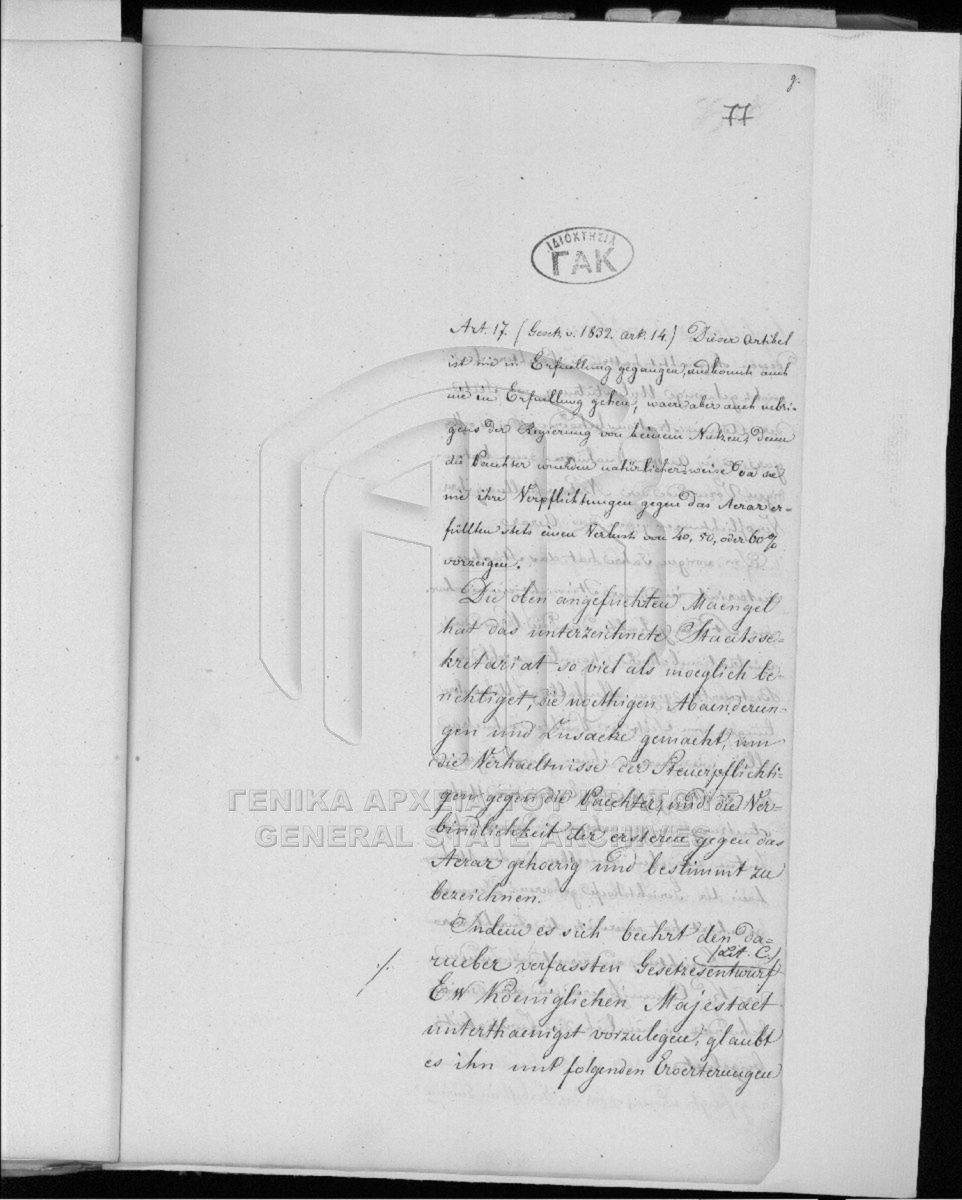 g.
77
ΙΔΙΟΚΤΗΣΙΑ
ΓΑΚ
Art. 17. (Gesetz v. 1832. art. 14.) Dieser Artikel
ist nie in Erfuellung gegangen, und konnte auch
nie in Erfuellung gehen, waere aber auch uebri-
gens der Regierung von keinem Nutzen, denn
die Paechter wuerden natürlicherweise da sie
nie ihre Verpflichtungen gegen das Aerar er-
füllten stets einen Verlust von 40, 50, oder 60%
vorzeigen.
Die oben angefuehrten Maengel
hat das unterzeichnete Staatsse-
kretariat so viel als moeglich be-
richtiget, die noethigen Abaenderun-
gen und Zusaetze gemacht, um
die Verhaeltnisse der Steuerpflichti-
gen gegen die Paechter, und die Ver-
bindlichkeit der ersteren gegen das
Aerar gehoerig und bestimmt zu
bezeichnen.
Indem es sich beehrt den da-
(Lit. C.)
rueber verfassten Gesetzesentwurf
./.
Ew Koeniglichen Majestaet
unterthaenigst vorzulegen, glaubt
es ihn mit folgenden Eroerterungen
ΓΕΝΙΚΑ ΑΡΧΕΙΑ ΤΟΥ ΚΡΑΤΟΥΣ
GENERAL STATE ARCHIVES